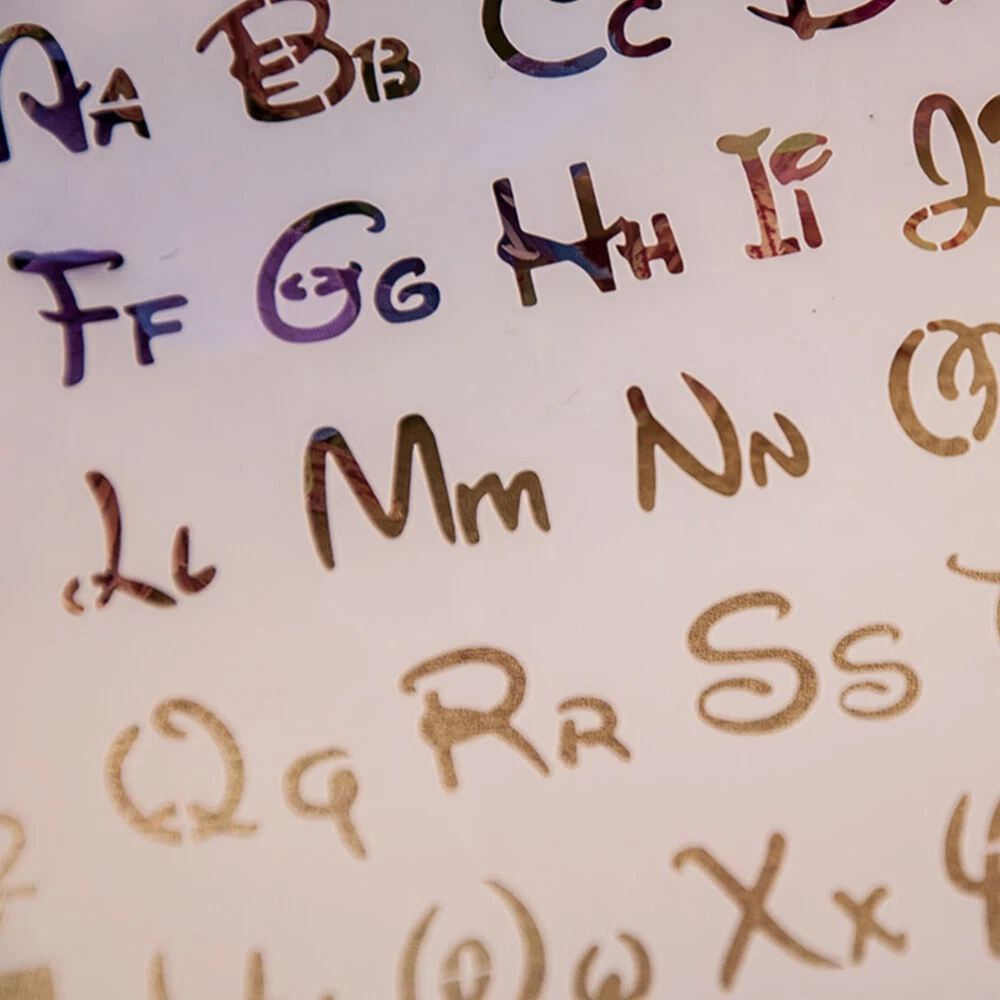 Aa Bb Cc D
Ff Gg Hh Ii J
Ll Mm Nn O
Qq Rr Ss T
Ww Xx